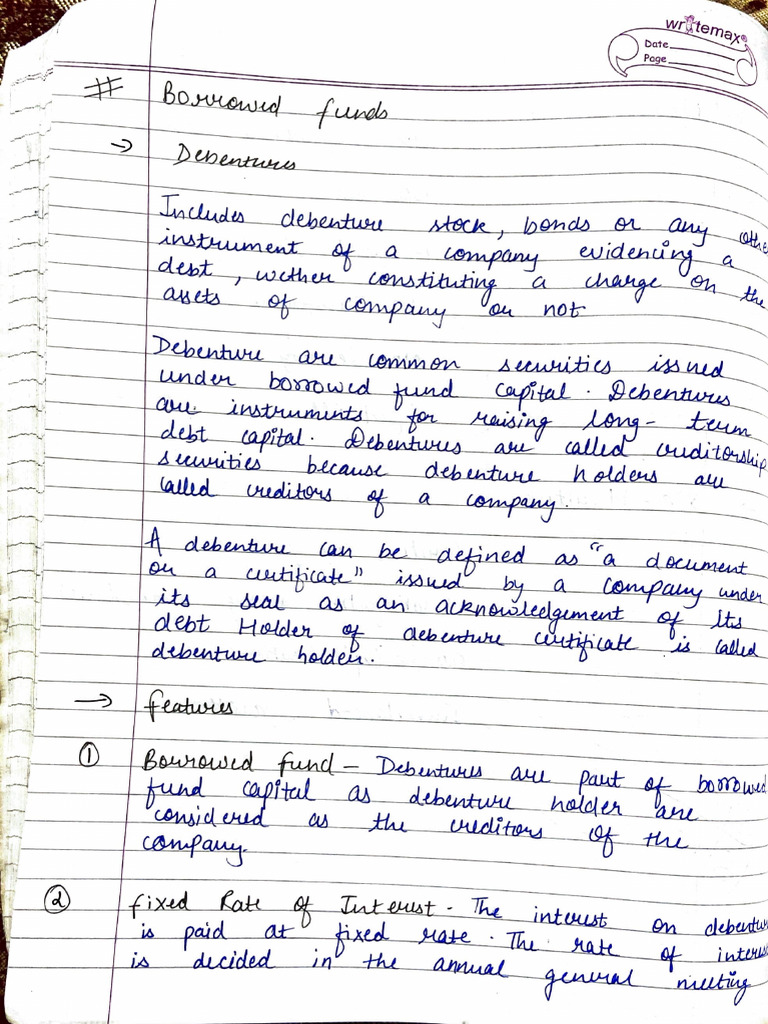 writemax
Date
Page
# Borrowed funds
→ Debentures
Includes debenture stock, bonds or any othe
instrument of a company evidencing a
debt, wether constituting a charge on the
assets of company or not
Debenture are common securities issued
under borrowed fund capital. Debentures
are instruments for raising long-term
debt capital. Debentures are called creditorship
securities because debenture holders are
called creditors of a company.
A debenture can be defined as "a document
or a certificate" issued by a company under
its seal as an acknowledgement of its
debt Holder of debenture certificate is called
debenture holder.
→ features
① Borrowed fund - Debentures are part of borrowed
fund capital as debenture holder are
considered as the creditors of the
company.
② fixed Rate of Interest - The interest on debentur
is paid at fixed rate. The rate of interes
is decided in the annual general meeting